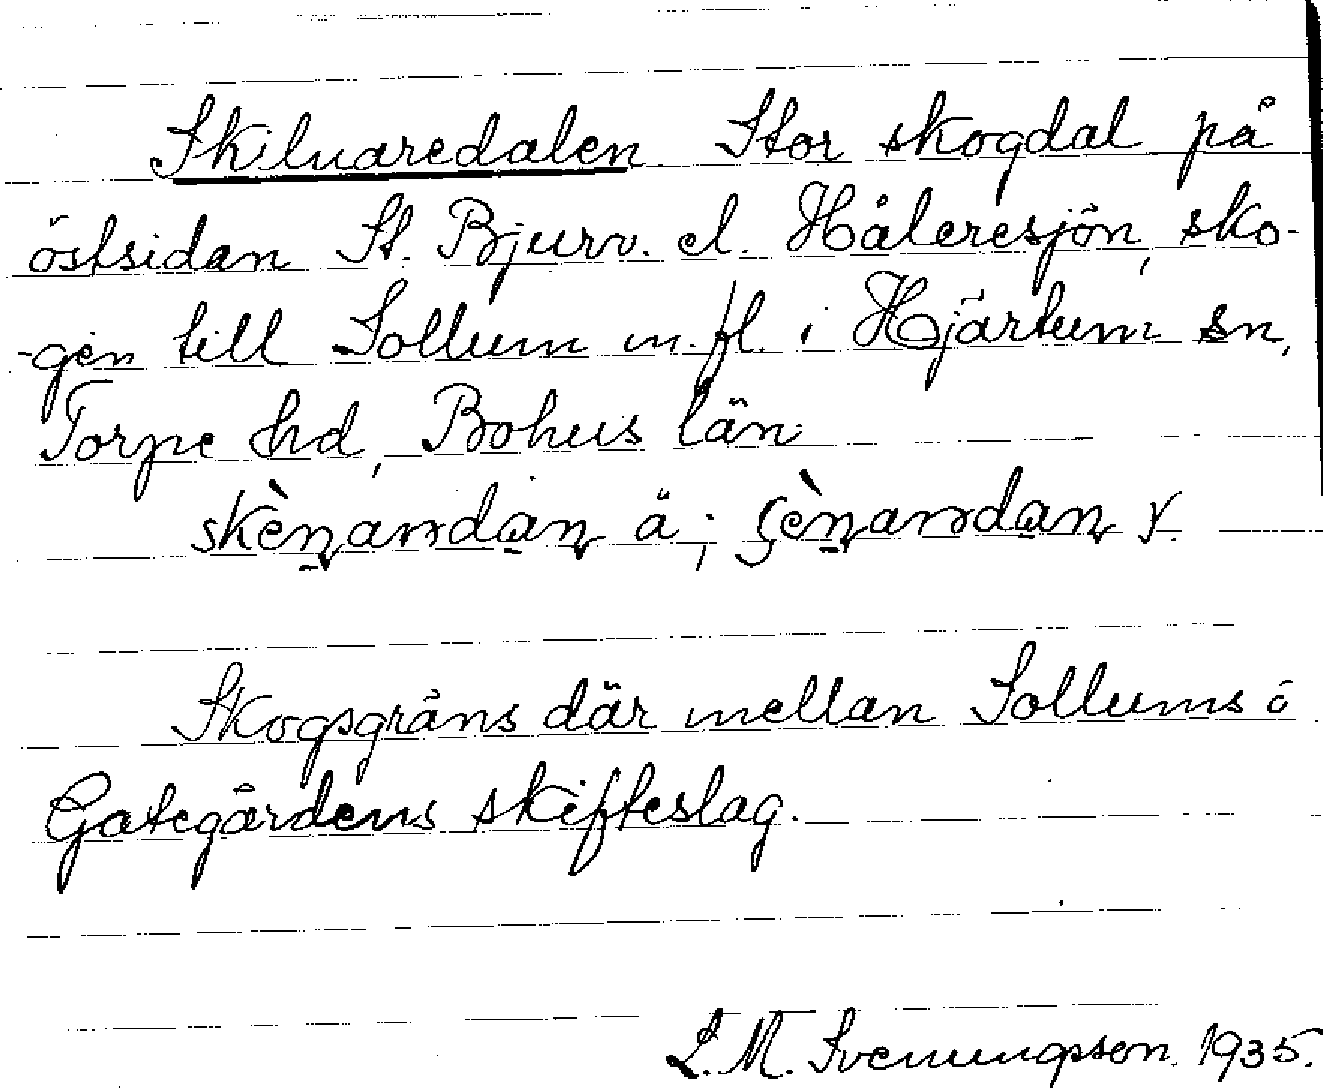 Skilnaredalen Stor skogdal på
östsidan St. Bjurv. el. Håleresjön, sko-
-gen till Sollum m.fl. i Hjärtum sn,
Torpe hd, Bohus län
skènandan ä; ʂènandan y.
Skogsgräns där mellan Sollums ö
Gategårdens skifteslag.
L.M. Svenungsson. 1935.